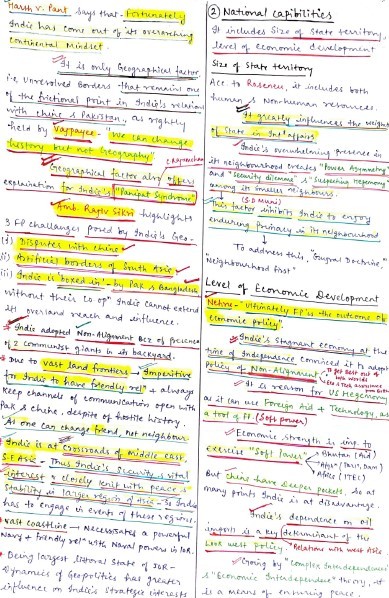 Harsh v. Pant says that - Fortunately
India has come out of its overarching
Continental Mindset.
It is only Geographical factor
i.e. Unresolved Borders that remains one
of the frictional point in India's relations
with China & Pakistan, as rightly
held by Vajpayee - "We can change
history but not Geography"
Geographical factor also offers
explanation for India's "Panipat Syndrome"
Amb. Rajiv Sikri highlights
3 FP challanges posed by India's Geo-
(i) Disputes with China
(ii) Artificial borders of South Asia
(iii) India is 'boxed in' - by Pak & Bangladesh
without their co opn India cannot extend
its overland reach and influence.
India adopted Non-Alignment bcz of presence
of 2 communist giants in its backyard.
Due to vast land frontiers → Imperitive
for India to have friendly reln + always
keep channels of communication open with
Pak & China, despite of hostile history.
As one can change friend, not neighbour
India is at crossroads of middle east,
S.E Asia - Thus India's Security & vital
interest is closely knit with peace &
Stability in larger region of Asia - So India
has to engage in events of these regions.
Vast coastline - Necessitates a powerful
Navy + friendly reln with Naval powers in IOR.
Being largest littoral State of IOR -
Dynamics of Geopolitics has greater
influence on India's Strategic interests
② National capibilities
It includes Size of State territory,
level of economic development
Size of State territory
Acc to Rosenau, it includes both
human & Nonhuman resources.
It greatly influences the weight
of State in Intl affairs
India's overwhelming presence in
its neighbourhood creates "Power Asymmetry"
and "Security dilemma" & "Suspecting Hegemony"
among its smaller neighbours.
(S.D Muni)
This factor inhibits India to enjoy
enduring primacy in its neighbourhood
To address this, "Gujral Doctrine"
"Neighbourhood first"
Level of Economic Development
Nehru - "Ultimately FP is the outcome of
economic policy".
India's stagnant economy at the
time of Independence convinced it to adopt
Policy of Non-Alignment
It is reason for US Hegemony
as it can use Foreign Aid + Technology, as
a tool of FP. (Soft power)
Economic strength is imp. to
exercise "Soft Power"
Bhutan (Aid)
Africa (ITEC)
But China have deeper pockets, so at
many point India is at disadvantage.
India's dependence on oil
imports is a key determinant of the
Look west policy. Relations with West Asia
Going by "Complex Interdependence"
& "Economic Interdependence" theory, it
is a means of ensuring peace.